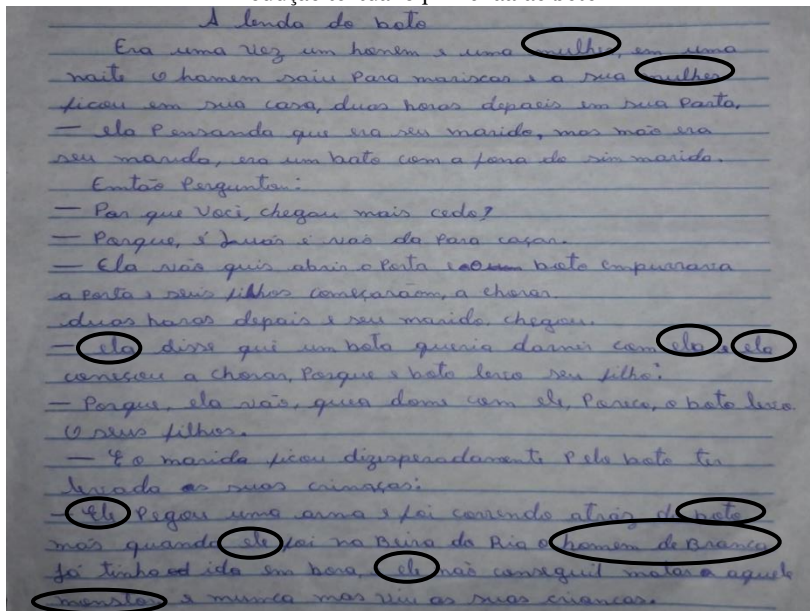 A lenda do boto
Era uma vez um homem e uma mulher, em uma
noite o homem saiu Para mariscar e a sua mulher
ficou em sua casa, duas horas depois em sua Porta,
— ela Pensando que era seu marido, mas não era
seu marido, era um boto com a fona do sin marido.
Emtão Perguntou:
— Por que Voci, chegou mais cedo?
— Porque, é e não da Para caçar.
— Ela não quis abrir a Porta boto empurrava
a Porta e seus filhos começaram, a chorar.
duas horas depois e seu marido, chegou.
— ela disse qui um boto queria dormir com ela e ela
começou a chorar, Porque o boto levo seu filho:
— Porque, ela não, quia domi com ele, o boto levo
O seus filhos.
— E o marido ficou dizesperadamente Pelo boto ter
levado as suas crianças:
— Ele Pegou uma arma e foi correndo atráz do boto
mas quando ele foi na Beira do Rio o homem de Branco
já tinha ido em bora, ele não conseguil matar a aquele
monstro e nunca mas viu as suas crianças.